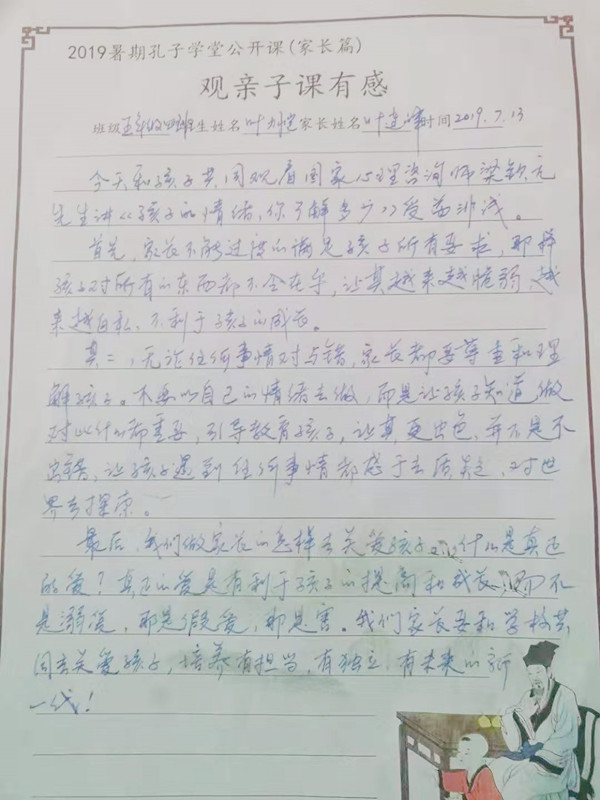 2019暑期孔子学堂公开课(家长篇)
观亲子课有感
班级五年级四班学生姓名叶 家长姓名叶 时间2019.7.13
今天和孩子共同观看国家心理咨询师梁钦元
先生讲《孩子的情绪,你了解多少》受益非浅。
首先,家长不能过度的满足孩子所有要求,那样
孩子对所有的东西都不会在乎,让其越来越脆弱,越
来越自私,不利于孩子的成长。
其二,无论任何事情对与错,家长都要尊重和理
解孩子。不要以自己的情绪去做,而是让孩子知道做
对比什么都重要,引导教育孩子,让其更出色,并不是不
出错,让孩子遇到任何事情都敢于去质疑,对世
界去探索。
最后,我们做家长的怎样去关爱孩子,什么是真正
的爱?真正的爱是有利于孩子的提高和成长,而不
是溺爱,那是假爱,那是害。我们家长要和学校共
同去关爱孩子,培养有担当,有独立,有未来的新
一代!